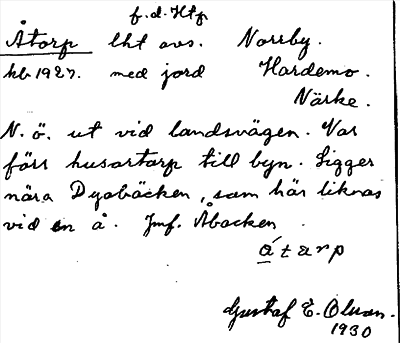 f.d. Htp
Åtorp lht avs. Norrby.
hb 1927. med jord Hardemo.
Närke.
N.ö. ut vid landsvägen. Var
förr husartorp till byn. Ligger
nära Dyabäcken, som här liknas
vid en å. Jmf. Åbacken.
åtarp
Gustaf E. Olsson.
1930